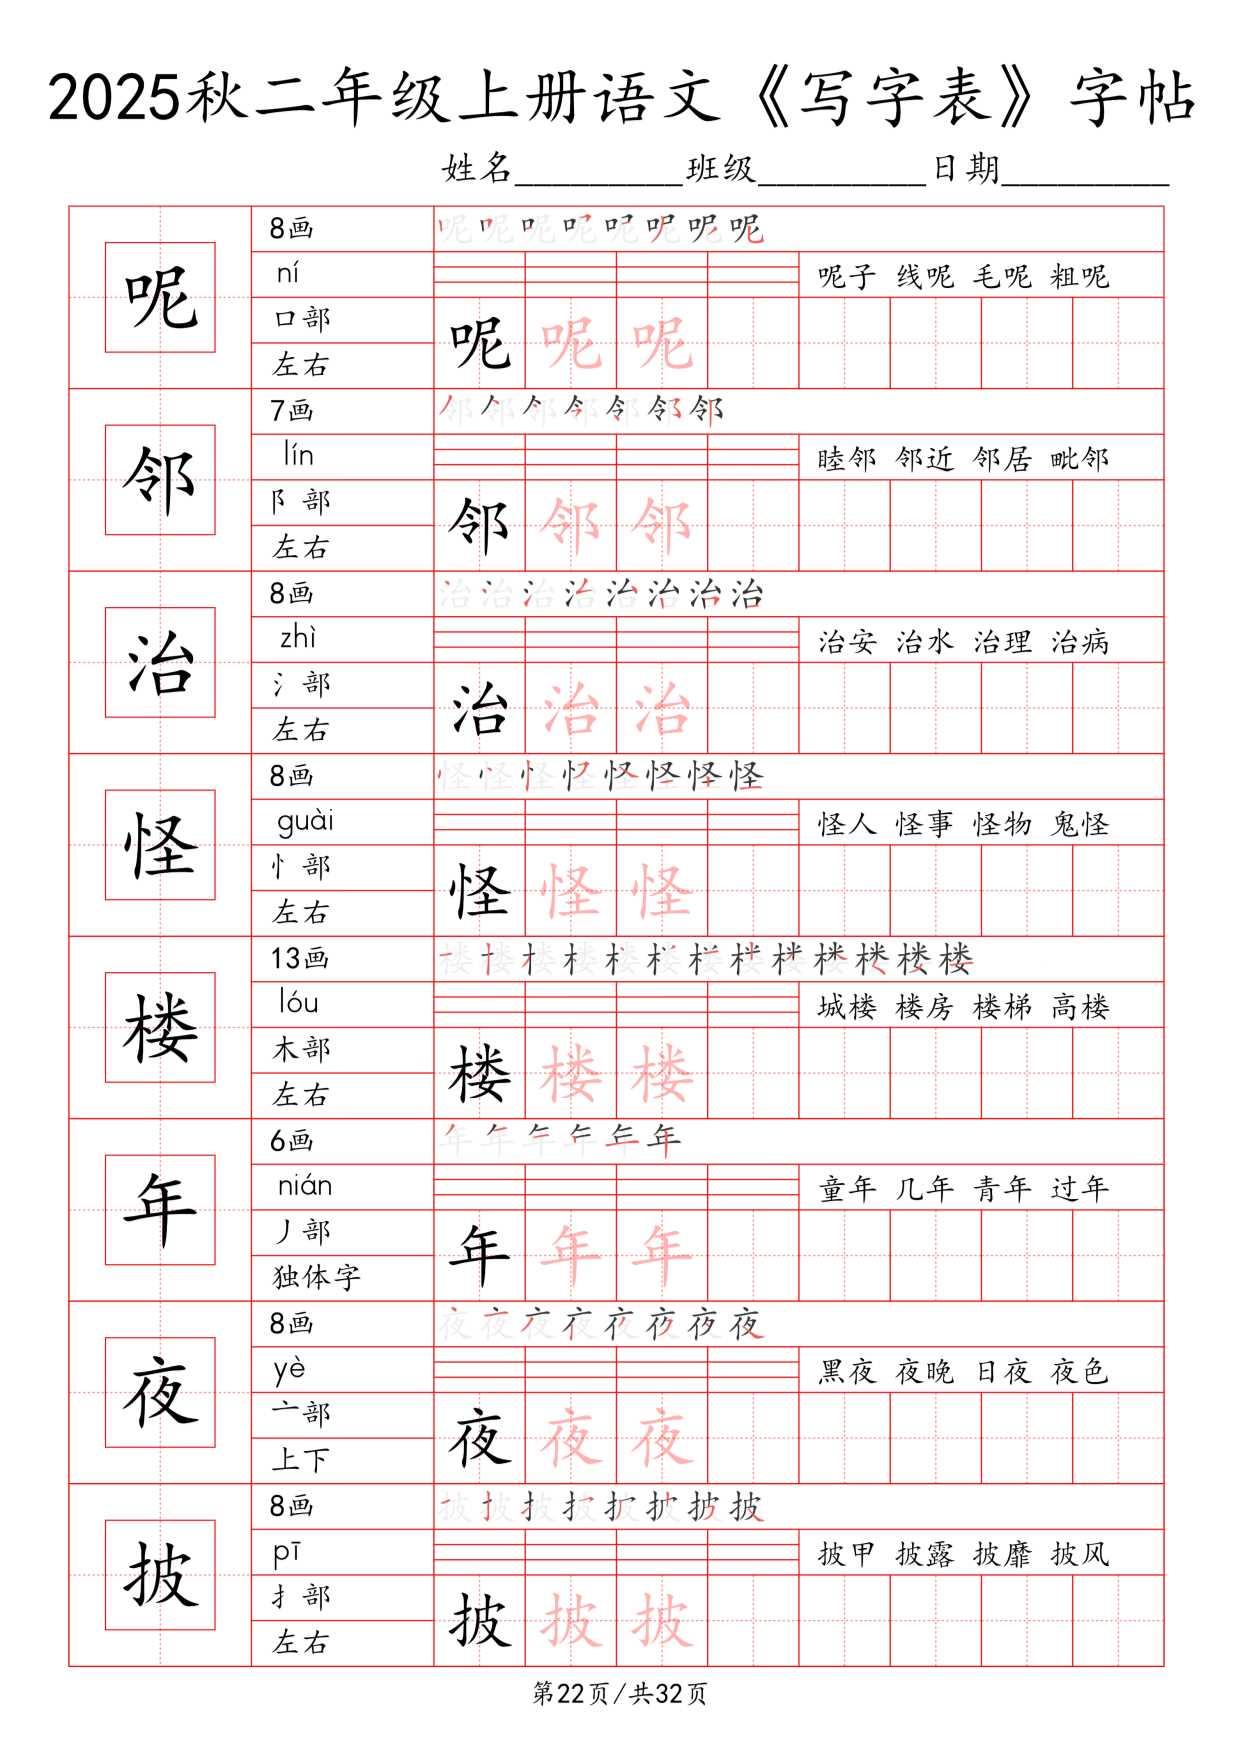 2025秋二年级上册语文《写字表》字帖
姓名_________班级_________日期_________
呢
8画
呢呢呢呢呢呢呢呢
ní
呢子 线呢 毛呢 粗呢
口部
呢 呢 呢
左右
邻
7画
邻邻邻邻邻邻邻
lín
睦邻 邻近 邻居 毗邻
阝部
邻 邻 邻
左右
治
8画
治治治治治治治治
zhì
治安 治水 治理 治病
氵部
治 治 治
左右
怪
8画
怪怪怪怪怪怪怪怪
guài
怪人 怪事 怪物 鬼怪
忄部
怪 怪 怪
左右
楼
13画
楼楼楼楼楼楼楼楼楼楼楼楼楼
lóu
城楼 楼房 楼梯 高楼
木部
楼 楼 楼
左右
年
6画
年年年年年年
nián
童年 几年 青年 过年
丿部
年 年 年
独体字
夜
8画
夜夜夜夜夜夜夜夜
yè
黑夜 夜晚 日夜 夜色
亠部
夜 夜 夜
上下
披
8画
披披披披披披披披
pī
披甲 披露 披靡 披风
扌部
披 披 披
左右
第22页/共32页